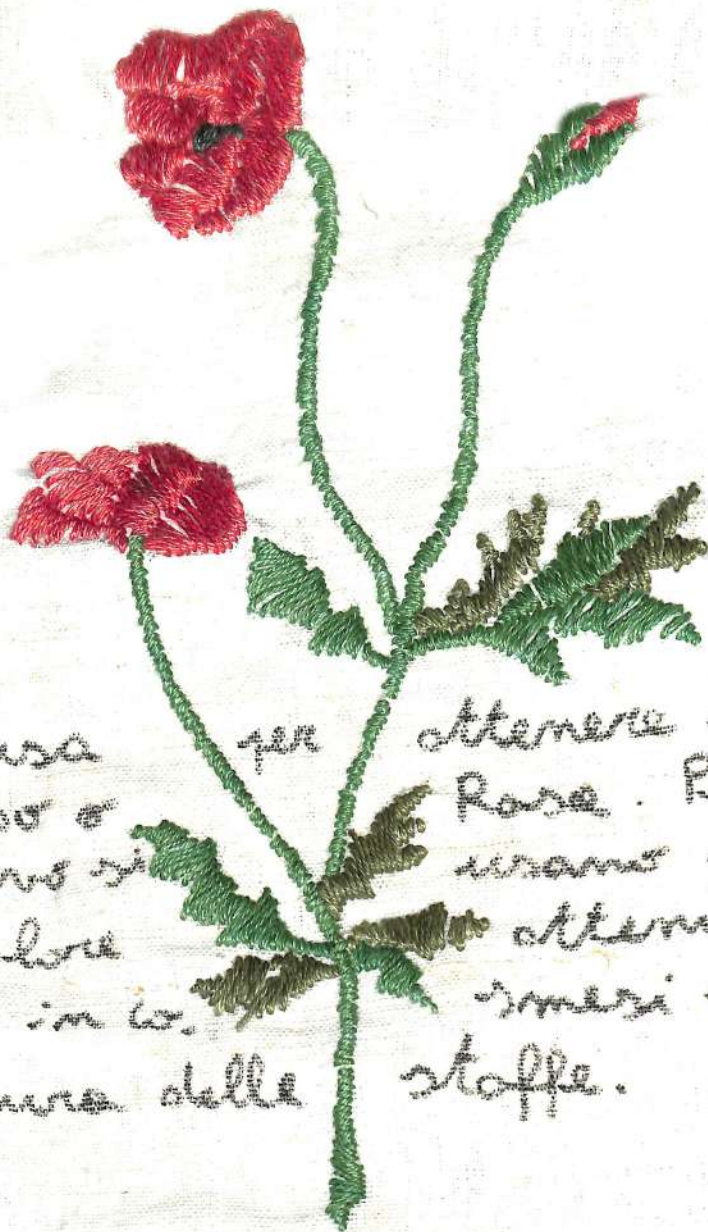 usa per ottenere
so o Rosa.
vo si usano
lore otten
in co, smesi
ura delle stoffe.